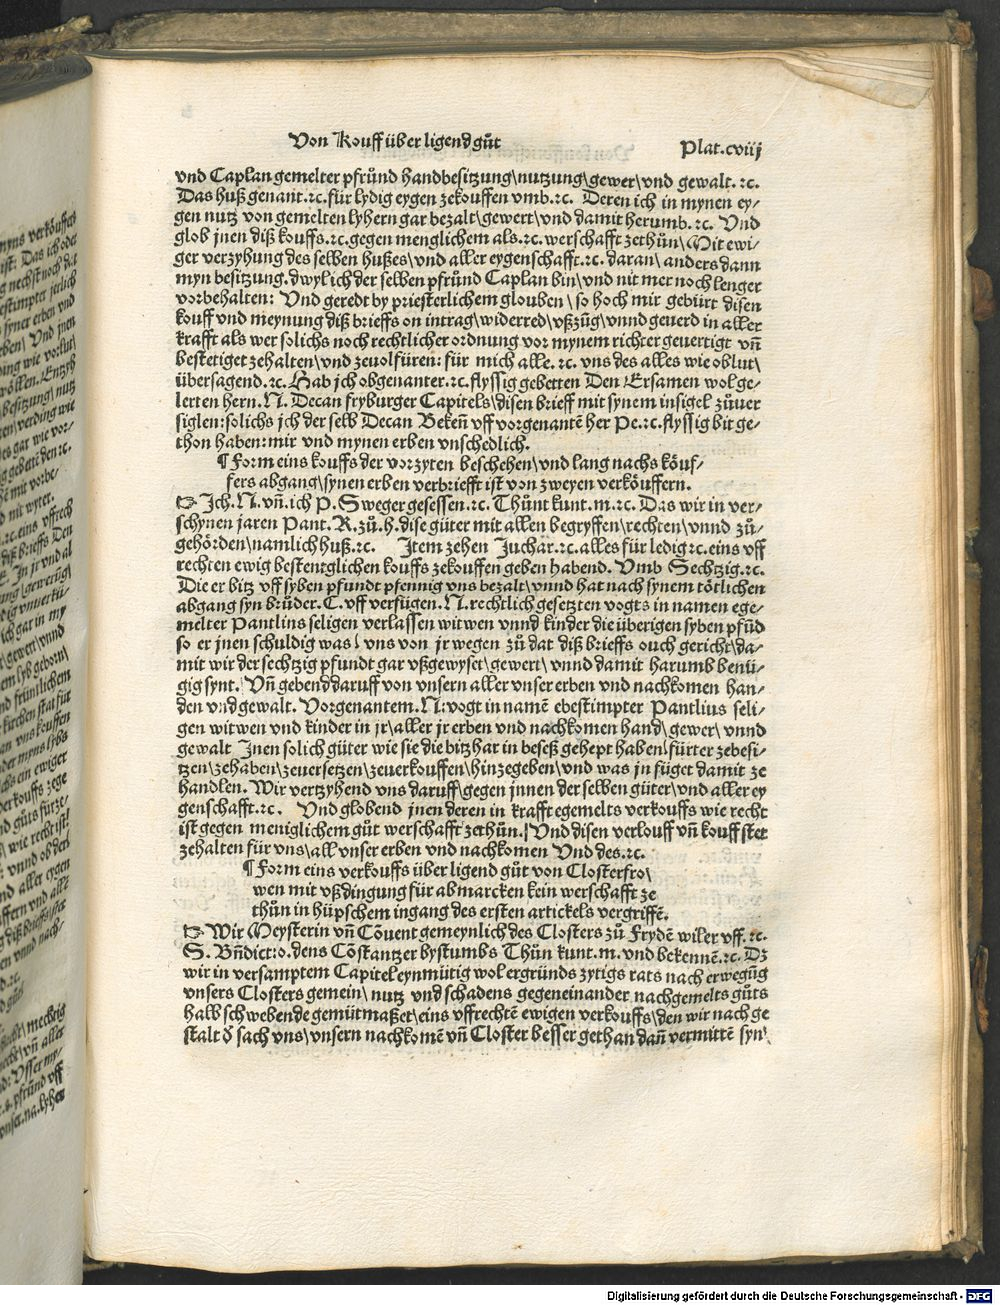 Von Kouff über ligend gůt
Plat.cviij
vnd Caplan gemelter pfründ handbesitzung\nutzung\gewer\vnd gewalt.ꝛc.
Das huß genant.ꝛc.für lydig eygen zekouffen vmb.ꝛc. Deren ich in mynen ey⸗
gen nutz von gemelten lyhern gar bezalt\gewert\vnd damit herumb.ꝛc. Vnd
glob jnen diß kouffs.ꝛc.gegen menglichem als.ꝛc.werschafft zethůn\Mit ewi⸗
ger verzyhung des selben hußes\vnd aller eygenschafft.ꝛc.daran\anders dann
myn besitzung.dwylich der selben pfründ Caplan bin\vnd nit mer noch lenger
vorbehalten: Vnd geredt by priesterlichem glouben\so hoch mir gebürt disen
kouff vnd meynung diß brieffs on intrag\widerred\vßzüg\vnnd geuerd in aller
krafft als wer solichs noch rechtlicher ordnung vor mynem richter geuertigt vñ
bestetiget zehalten\vnd zeuolfüren: für mich alle.ꝛc.vns des alles wie oblut\
übersagend.ꝛc.Hab jch obgenanter.ꝛc.flyssig gebetten Den Ersamen wolge⸗
lerten hern.N.Decan fryburger Capitels\disen brieff mit synem insigel zůuer
siglen:solichs jch der selb Decan Bekeñ vff vorgenantē her Pe.ꝛc.flyssig bit ge⸗
thon haben:mir vnd mynen erben vnschedlich.
¶ Form eins kouffs der vorzyten beschehen\vnd lang nachs köuf⸗
fers abgang\synen erben verbriefft ist von zweyen verköuffern.
☞ Jch.N.vñ.ich P.Sweger gesessen.ꝛc.Thůnt kunt.m.ꝛc.Das wir in ver⸗
schynen jaren Pant.R.zů.h.dise güter mit allen begryffen\rechten\vnnd zů⸗
gehörden\namlich huß.ꝛc. Jtem zehen Juchar.ꝛc.alles für ledig ꝛc.eins vff
rechten ewig bestentglichen kouffs zekouffen geben habend.Vmb Sechtzig.ꝛc.
Die er bitz vff syben pfundt pfennig vns bezalt\vnnd hat nach synem tötlichen
abgang syn brůder.C.vff verfügen.N.rechtlich gesetzten vogts in namen ege⸗
melter Pantlins seligen verlassen witwen vnnd kinder die überigen syben pfūd
so er jnen schuldig was\vns von jr wegen zů dat diß brieffs ouch gericht\da⸗
mit wir der sechtzig pfundt gar vßgewyset\gewert\vnnd damit harumb benü⸗
gig synt.Vñ gebend daruff von vnsern aller vnser erben vnd nachkomen han⸗
den vnd gewalt.Vorgenantem.N:vogt in namē ebestimpter Pantlius seli⸗
gen witwen vnd kinder in jr\aller jr erben vnd nachkomen hand\gewer\vnnd
gewalt Jnen solich güter wie sie die bitzhar in beseß gehept haben\fürter zebesi⸗
tzen\zehaben\zeuersetzen\zeuerkouffen\hinzegeben\vnd was jn füget damit ze
handlen.Wir vertzyhend vns daruff\gegen jnnen der selben güter\vnd aller ey
genschafft.ꝛc. Vnd globend jnen deren in krafft egemelts verkouffs wie recht
ist gegen meniglichem gůt werschafft zethůn.\Vnd disen verlouff vñ kouff stet
zehalten für vns\all vnser erben vnd nachkomen Vnd des.ꝛc.
¶ Form eins verkouffs über ligend gůt von Closterfro\
wen mit vßdingung für abmarcken kein werschafft ze
thůn in hüpschem ingang des ersten artickels vergriffē.
☞ Wir Meysterin vñ Cōuent gemeynlich des Closters zů Frydē wiler vff.ꝛc.
S.Bñdict:o.dens Cōstantzer bystumbs Thůn kunt.m.vnd bekennē.ꝛc.Dz
wir in versamptem Capitel eynmütig wol ergründs zytigs rats nach erwegūg
vnsers Closters gemein\nutz vnd schadens gegeneinander nachgemelts gůts
halb schwebende gemütmaßet\eins vffrechtē ewigen verkouffs\den wir nach ge
stalt ď sach vns\vnsern nachkomē vñ Closter besser gethan dañ vermittē syn\
Digitalisierung gefördert durch die Deutsche Forschungsgemeinschaft - DFG